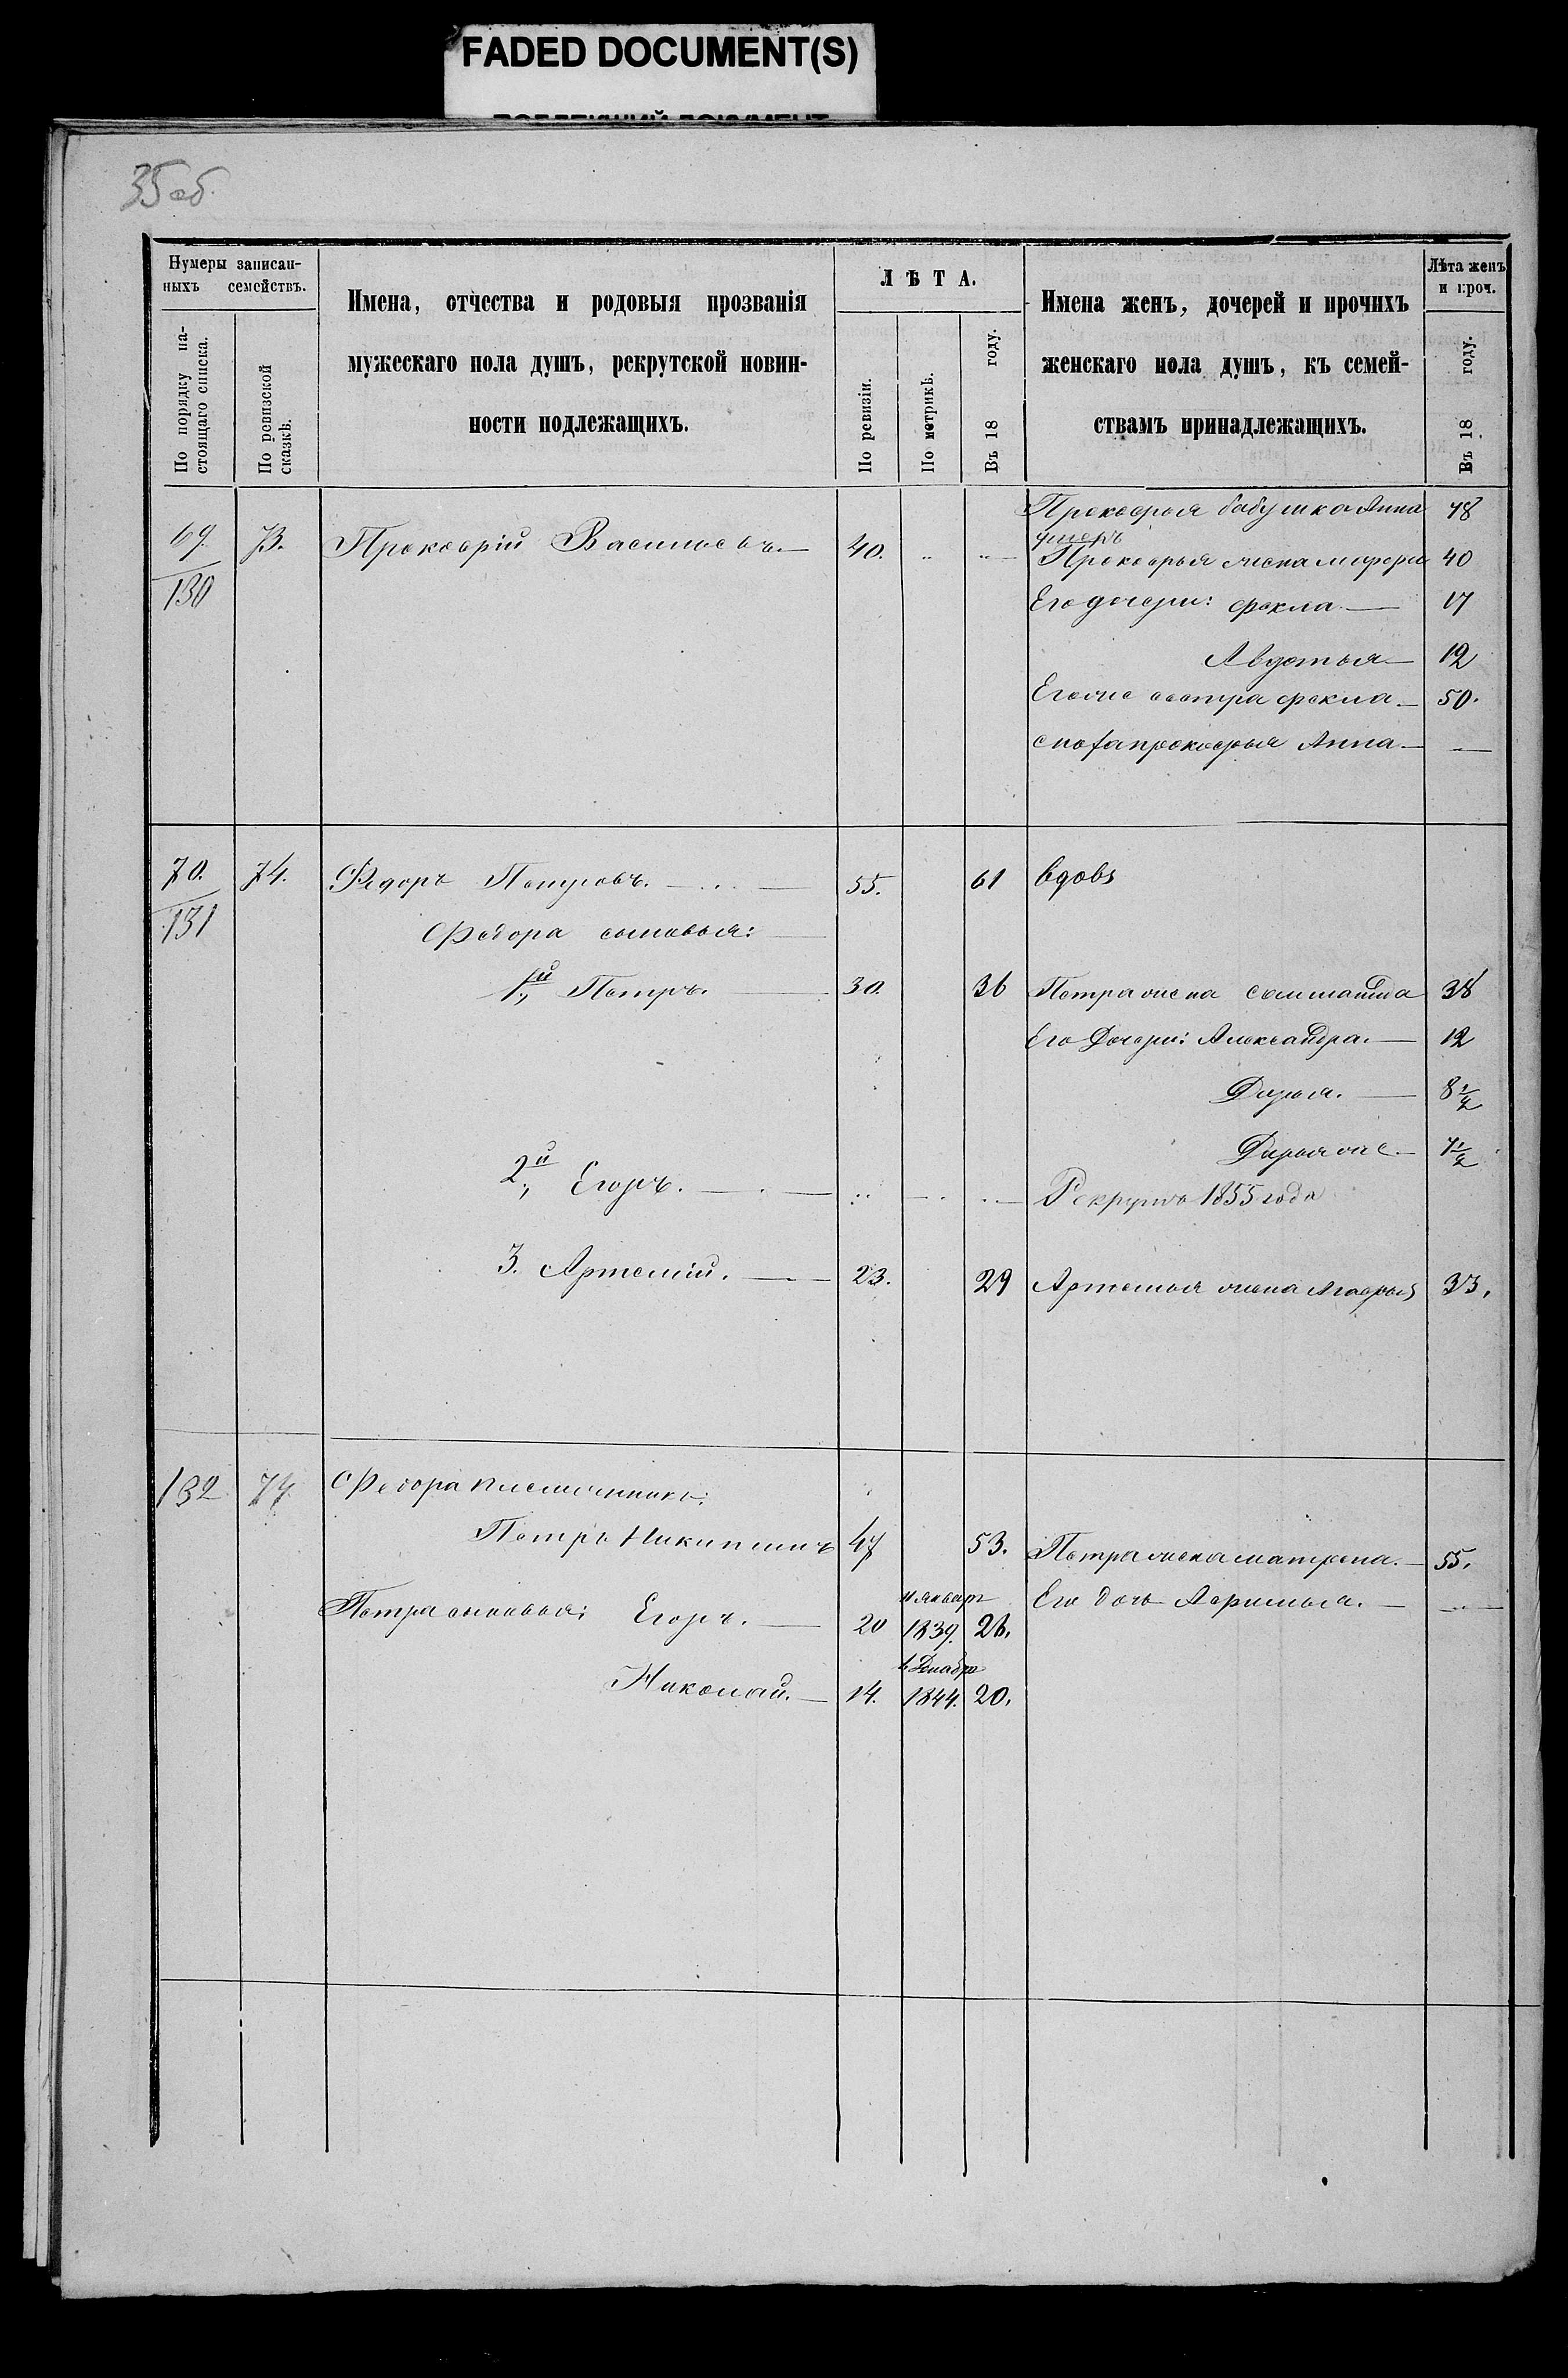 FADED DOCUMENT(S)
35 об.
Нумеры записан-
ныхъ семействъ.
По порядку на-
стоящаго списка.
По ревизской
сказкѣ.
Имена, отчества и родовыя прозванія
мужескаго пола душъ, рекрутской повин-
ности подлежащихъ.
ЛѢТА.
По ревизіи.
По метрикѣ.
Въ 18 году.
Имена женъ, дочерей и прочихъ
женскаго пола душъ, къ семей-
ствамъ принадлежащихъ.
Лѣта женъ
и проч.
Въ 18 году.
Прокофья бабушка Анна 78
умеръ
69. 73. Прокофій Васильевъ 40. Прокофья жена Марфа 40
130 Его дочери: Фекла 17
Авдотья 12
Его же сестра Фекла 50.
сноха Прокофья Анна
70. 74. Федоръ Петровъ. 55. 61 вдовъ
131 Федора сыновья:
1й Петръ. 30. 36 Петра жена 38
Его Дочери: Александра. 12
Дарья. 8½
Дарья же 7½
2й Егоръ. Рекрутъ 1855 года
3. Артемій. 23. 29 Артемья жена Марфа 33.
132 77 Федора племянникъ:
Петръ Никитинъ 47 53. Петра жена Матрена. 55.
11 Январ
Петра сыновья: Егоръ. 20 1839. 26. Его дочь Афимья.
6 Декабр
Николай. 14. 1844. 20.